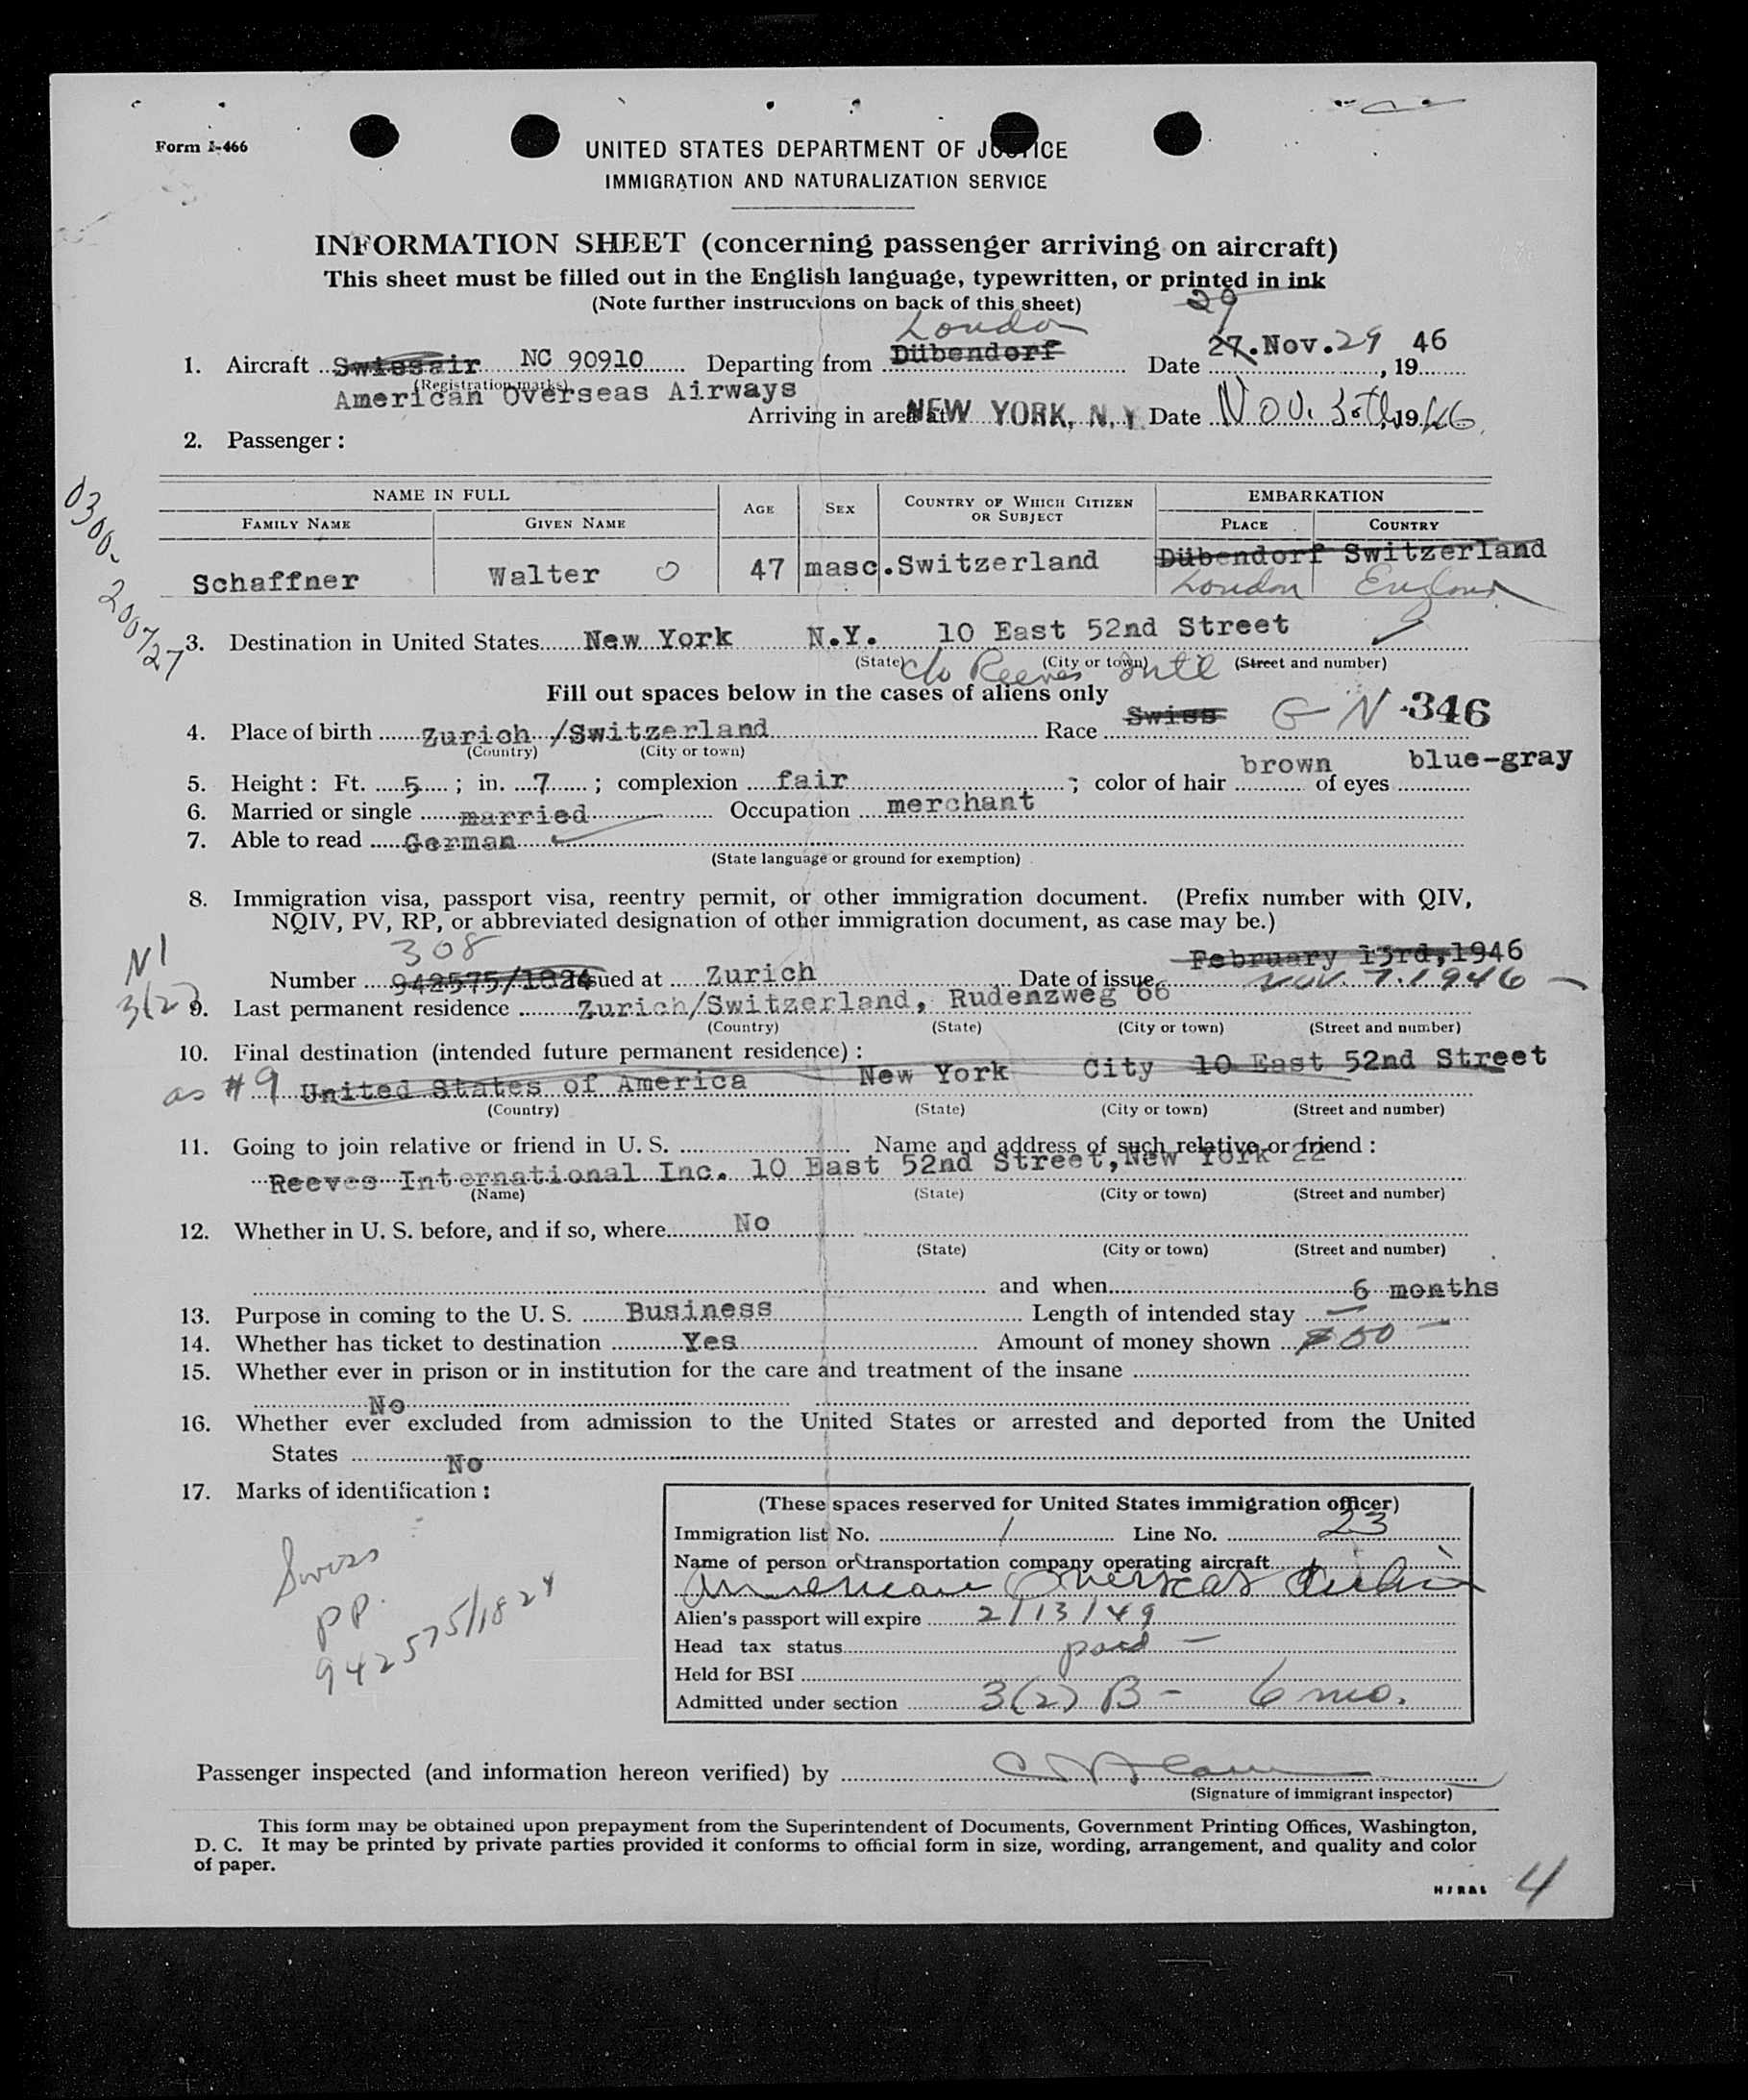 Form I-466
UNITED STATES DEPARTMENT OF JUSTICE
IMMIGRATION AND NATURALIZATION SERVICE
INFORMATION SHEET (concerning passenger arriving on aircraft)
This sheet must be filled out in the English language, typewritten, or printed in ink
(Note further instructions on back of this sheet)
29
London
1. Aircraft Swissair NC 90910 Departing from Dübendorf Date 27.Nov.29, 1946
(Registration marks)
American Overseas Airways
Arriving in area at NEW YORK, N.Y. Date Nov. 30th, 1946
2. Passenger:
0300-200727
NAME IN FULL AGE SEX COUNTRY OF WHICH CITIZEN OR SUBJECT EMBARKATION
FAMILY NAME GIVEN NAME PLACE COUNTRY
Schaffner Walter O 47 masc. Switzerland Dübendorf Switzerland
London England
3. Destination in United States New York N.Y. 10 East 52nd Street
(State) (City or town) (Street and number)
c/o Reeves Int'l
Fill out spaces below in the cases of aliens only
4. Place of birth Zurich /Switzerland Race Swiss G N 346
(Country) (City or town)
5. Height: Ft. 5; in. 7; complexion fair; color of hair brown of eyes blue-gray
6. Married or single married Occupation merchant
7. Able to read German
(State language or ground for exemption)
8. Immigration visa, passport visa, reentry permit, or other immigration document. (Prefix number with QIV,
NQIV, PV, RP, or abbreviated designation of other immigration document, as case may be.)
NI
3(2)
308
Number 942575/1824 Issued at Zurich Date of issue February 13rd,1946
Nov. 7. 1946
9. Last permanent residence Zurich/Switzerland, Rudenzweg 66
(Country) (State) (City or town) (Street and number)
10. Final destination (intended future permanent residence):
as #9 United States of America New York City 10 East 52nd Street
(Country) (State) (City or town) (Street and number)
11. Going to join relative or friend in U. S. Name and address of such relative or friend:
Reeves International Inc. 10 East 52nd Street,New York 22
(Name) (State) (City or town) (Street and number)
12. Whether in U. S. before, and if so, where No
(State) (City or town) (Street and number)
and when
13. Purpose in coming to the U. S. Business Length of intended stay 6 months
14. Whether has ticket to destination Yes Amount of money shown $50
15. Whether ever in prison or in institution for the care and treatment of the insane
No
16. Whether ever excluded from admission to the United States or arrested and deported from the United
States No
17. Marks of identification:
Swiss
PP.
942575/1824
(These spaces reserved for United States immigration officer)
Immigration list No. 1 Line No. 23
Name of person or transportation company operating aircraft
American Overseas Airlines
Alien's passport will expire 2/13/49
Head tax status paid
Held for BSI
Admitted under section 3(2) B - 6 mo.
Passenger inspected (and information hereon verified) by
(Signature of immigrant inspector)
This form may be obtained upon prepayment from the Superintendent of Documents, Government Printing Offices, Washington,
D. C. It may be printed by private parties provided it conforms to official form in size, wording, arrangement, and quality and color
of paper.
4